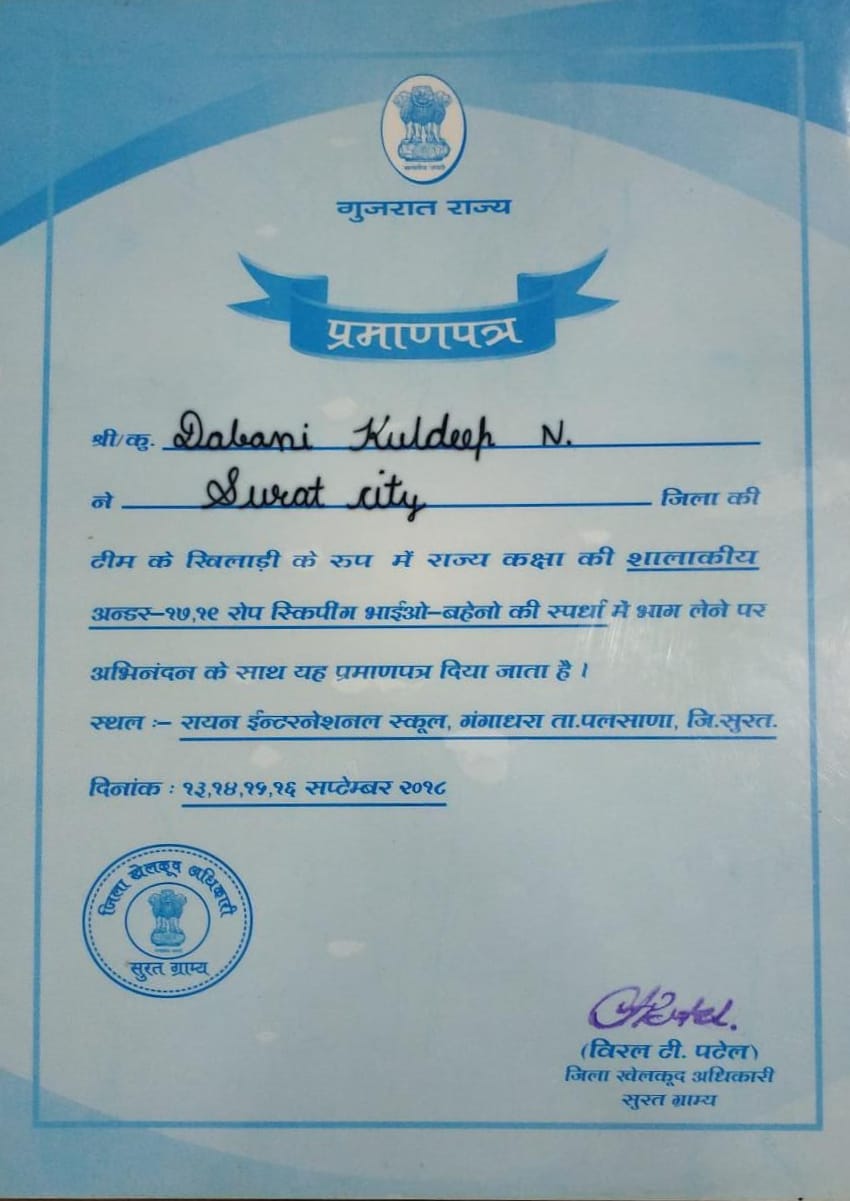 गुजरात राज्य
प्रमाणपत्र
श्री/कु. Dabani Kuldeep N.
ने Surat city जिला की
टीम के खिलाड़ी के रुप में राज्य कक्षा की शालाकीय
अन्डर-१७,१९ रोप स्किपींग भाईओ-बहेनो की स्पर्धा में भाग लेने पर
अभिनंदन के साथ यह प्रमाणपत्र दिया जाता है ।
स्थल :- रायन ईन्टरनेशनल स्कूल, गंगाधरा ता.पलसाणा, जि.सुरत.
दिनांक : १३,१४,१५,१६ सप्टेम्बर २०१८
जिला खेलकूद अधिकारी
सुरत ग्राम्य
(विरल टी. पटेल)
जिला खेलकूद अधिकारी
सुरत ग्राम्य